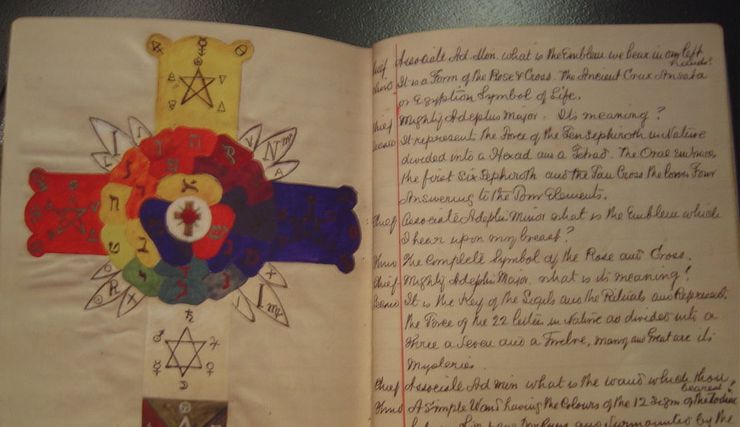 I
N
R
I
Chief Associate Ad. Mon. what is the Emblem we bear in our left
hands?
It is a Form of the Rose & Cross. The Ancient Crux Ansata
or Egyptian Symbol of Life.
Chief Mighty Adeptus Major. Its meaning?
It represents the Force of the Ten Sephiroth in Nature
divided into a Hexad and a Tetrad. The Oval embraces
the first Six Sephiroth and the Tau Cross the lower Four
Answering to the Four Elements.
Chief Associate Adeptus Minor what is the Emblem which
I bear upon my breast?
The Complete Symbol of the Rose and Cross.
Chief Mighty Adeptus Major, what is its meaning?
It is the Key of the Sigils and the Rituals and Represents
the Force of the 22 letters in Nature as divided into a
Three a Seven and a Twelve, Many and Great are its
Mysteries.
Chief Associate Ad Min what is the wand which thou
bearest?
A Simple Wand having the Colours of the 12 Signs of the Zodiac
and surmounted by the